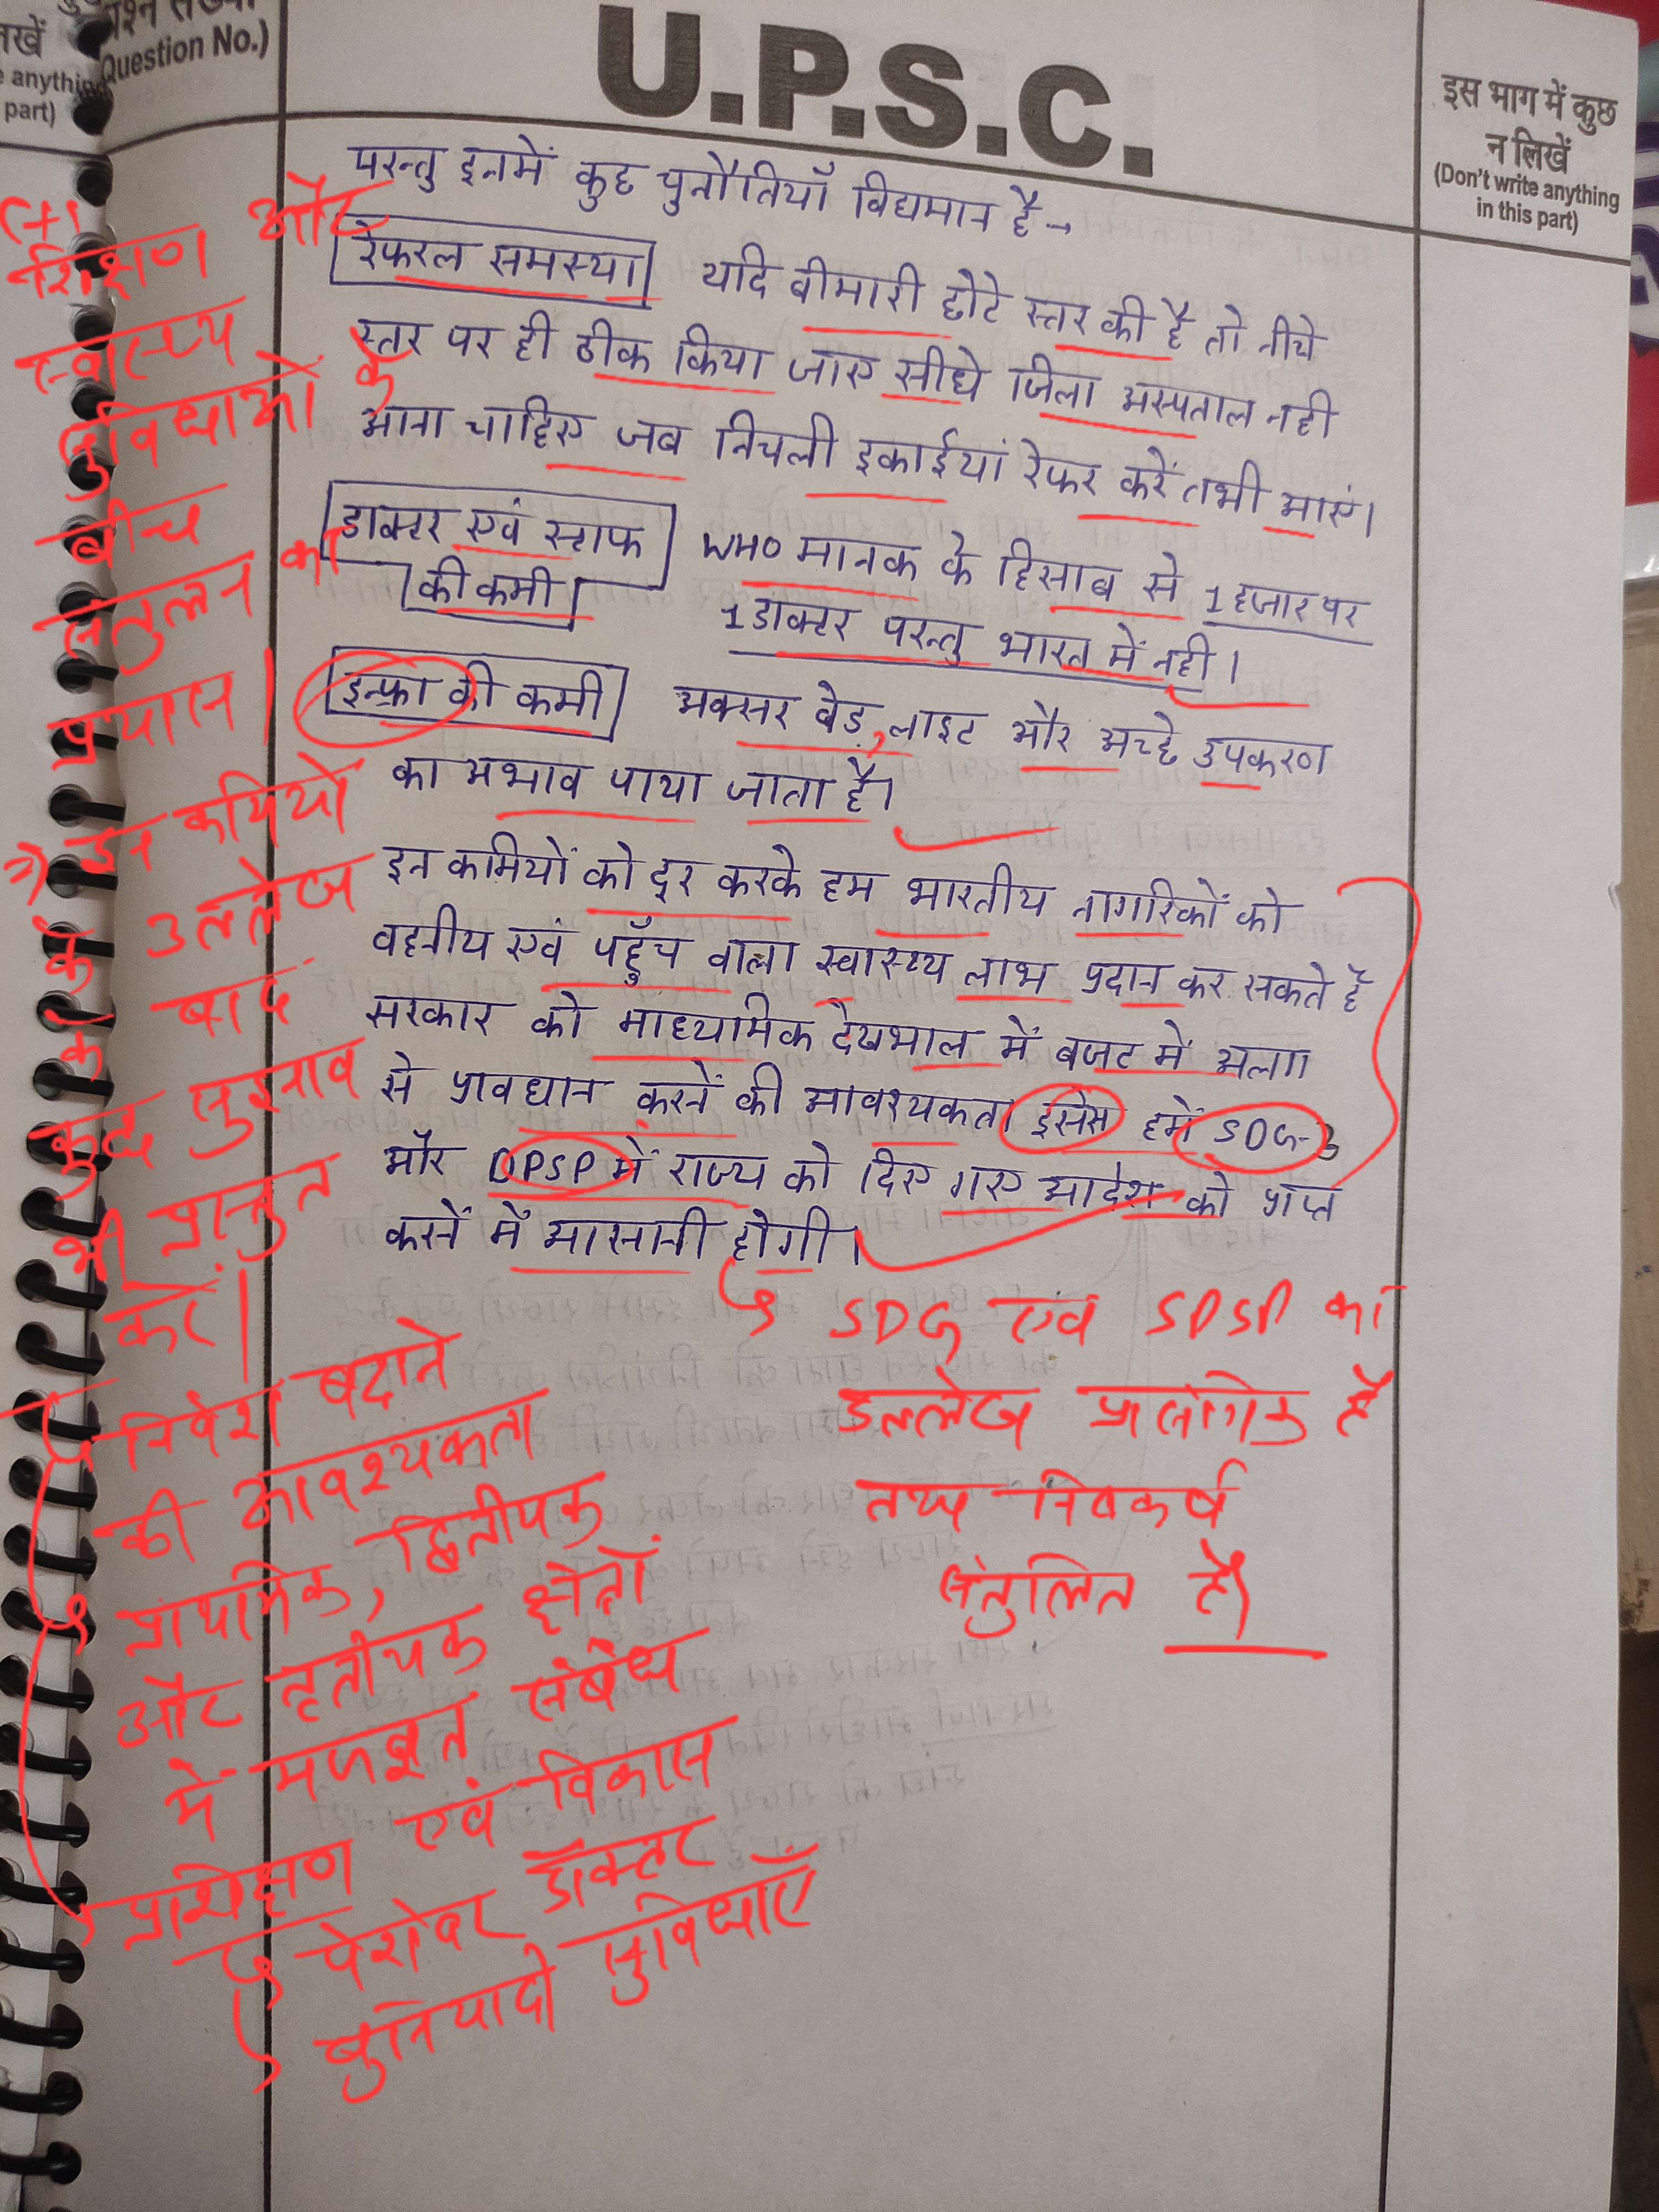 प्रश्न संख्या
(Question No.)
न लिखें
anything
part)
U.P.S.C.
इस भाग में कुछ
न लिखें
(Don't write anything
in this part)
परन्तु इनमें कुछ चुनौतियाँ विद्यमान है→
रेफरल समस्या यदि बीमारी छोटे स्तर की है तो नीचे
स्तर पर ही ठीक किया जाए सीधे जिला अस्पताल नही
आना चाहिए जब निचली इकाईयां रेफर करें तभी आएं।
डाक्टर एवं स्टाफ की कमी WHO मानक के हिसाब से 1 हजार पर
1 डाक्टर परन्तु भारत में नही।
इन्फ्रा की कमी अक्सर बेड, लाइट और अच्छे उपकरण
का अभाव पाया जाता है।
इन कमियों को दूर करके हम भारतीय नागरिकों को
वहनीय एवं पहुँच वाला स्वास्थ्य लाभ प्रदान कर सकते है
सरकार को माध्यमिक देखभाल में बजट में अलग
से प्रावधान करनें की आवश्यकता इससे हमें SDG-3
और DPSP में राज्य को दिए गए आदेश को प्राप्त
करनें में आसानी होगी।
(+)
शिक्षण और
स्वास्थ्य
सुविधाओं के
बीच
संतुलन का
प्रयास।
→ इन कमियों
के उल्लेख
के बाद
कुछ सुझाव
भी प्रस्तुत
करें।
निवेश बढ़ाने
की आवश्यकता
प्राथमिक, द्वितीयक
और तृतीयक क्षेत्रों
में मजबूत संबंध
प्रशिक्षण एवं विकास
पेशेवर डॉक्टर
बुनियादी सुविधाएँ
SDG एवं SPSP का
उल्लेख प्रासंगिक है
तथा निष्कर्ष
संतुलित है।